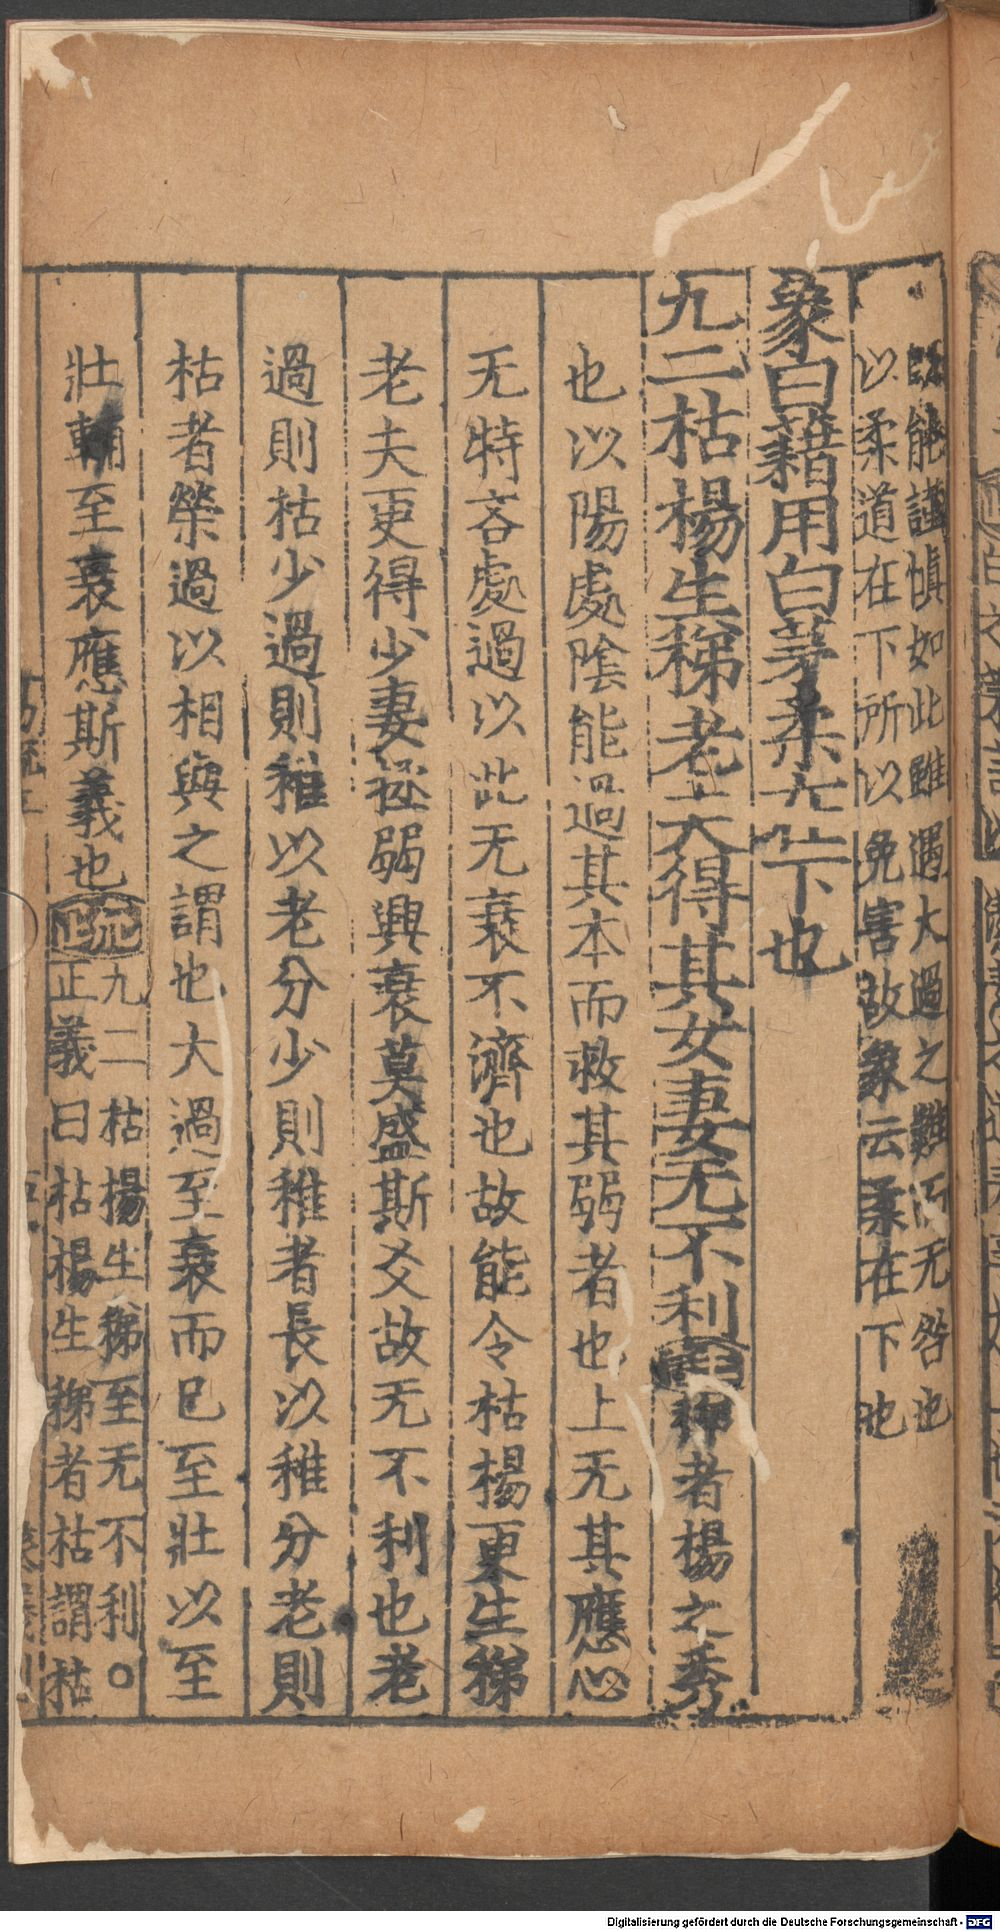 既能謹慎如此雖遇大過之難而无咎也
以柔道在下所以免害故象云柔在下也
象曰藉用白茅柔在下也
九二枯楊生稊老夫得其女妻无不利註稊者楊之秀
也以陽處陰能過其本而救其弱者也上无其應心
无特吝處過以此无衰不濟也故能令枯楊更生稊
老夫更得少妻拯弱興衰莫盛斯爻故无不利也老
過則枯少過則稚以老分少則稚者長以稚分老則
枯者榮過以相與之謂也大過至衰而已至壯以至
壯輔至衰應斯義也
疏正
九二枯楊生稊至无不利○
正義曰枯楊生稊者枯謂枯
Digitalisierung gefördert durch die Deutsche Forschungsgemeinschaft - DFG